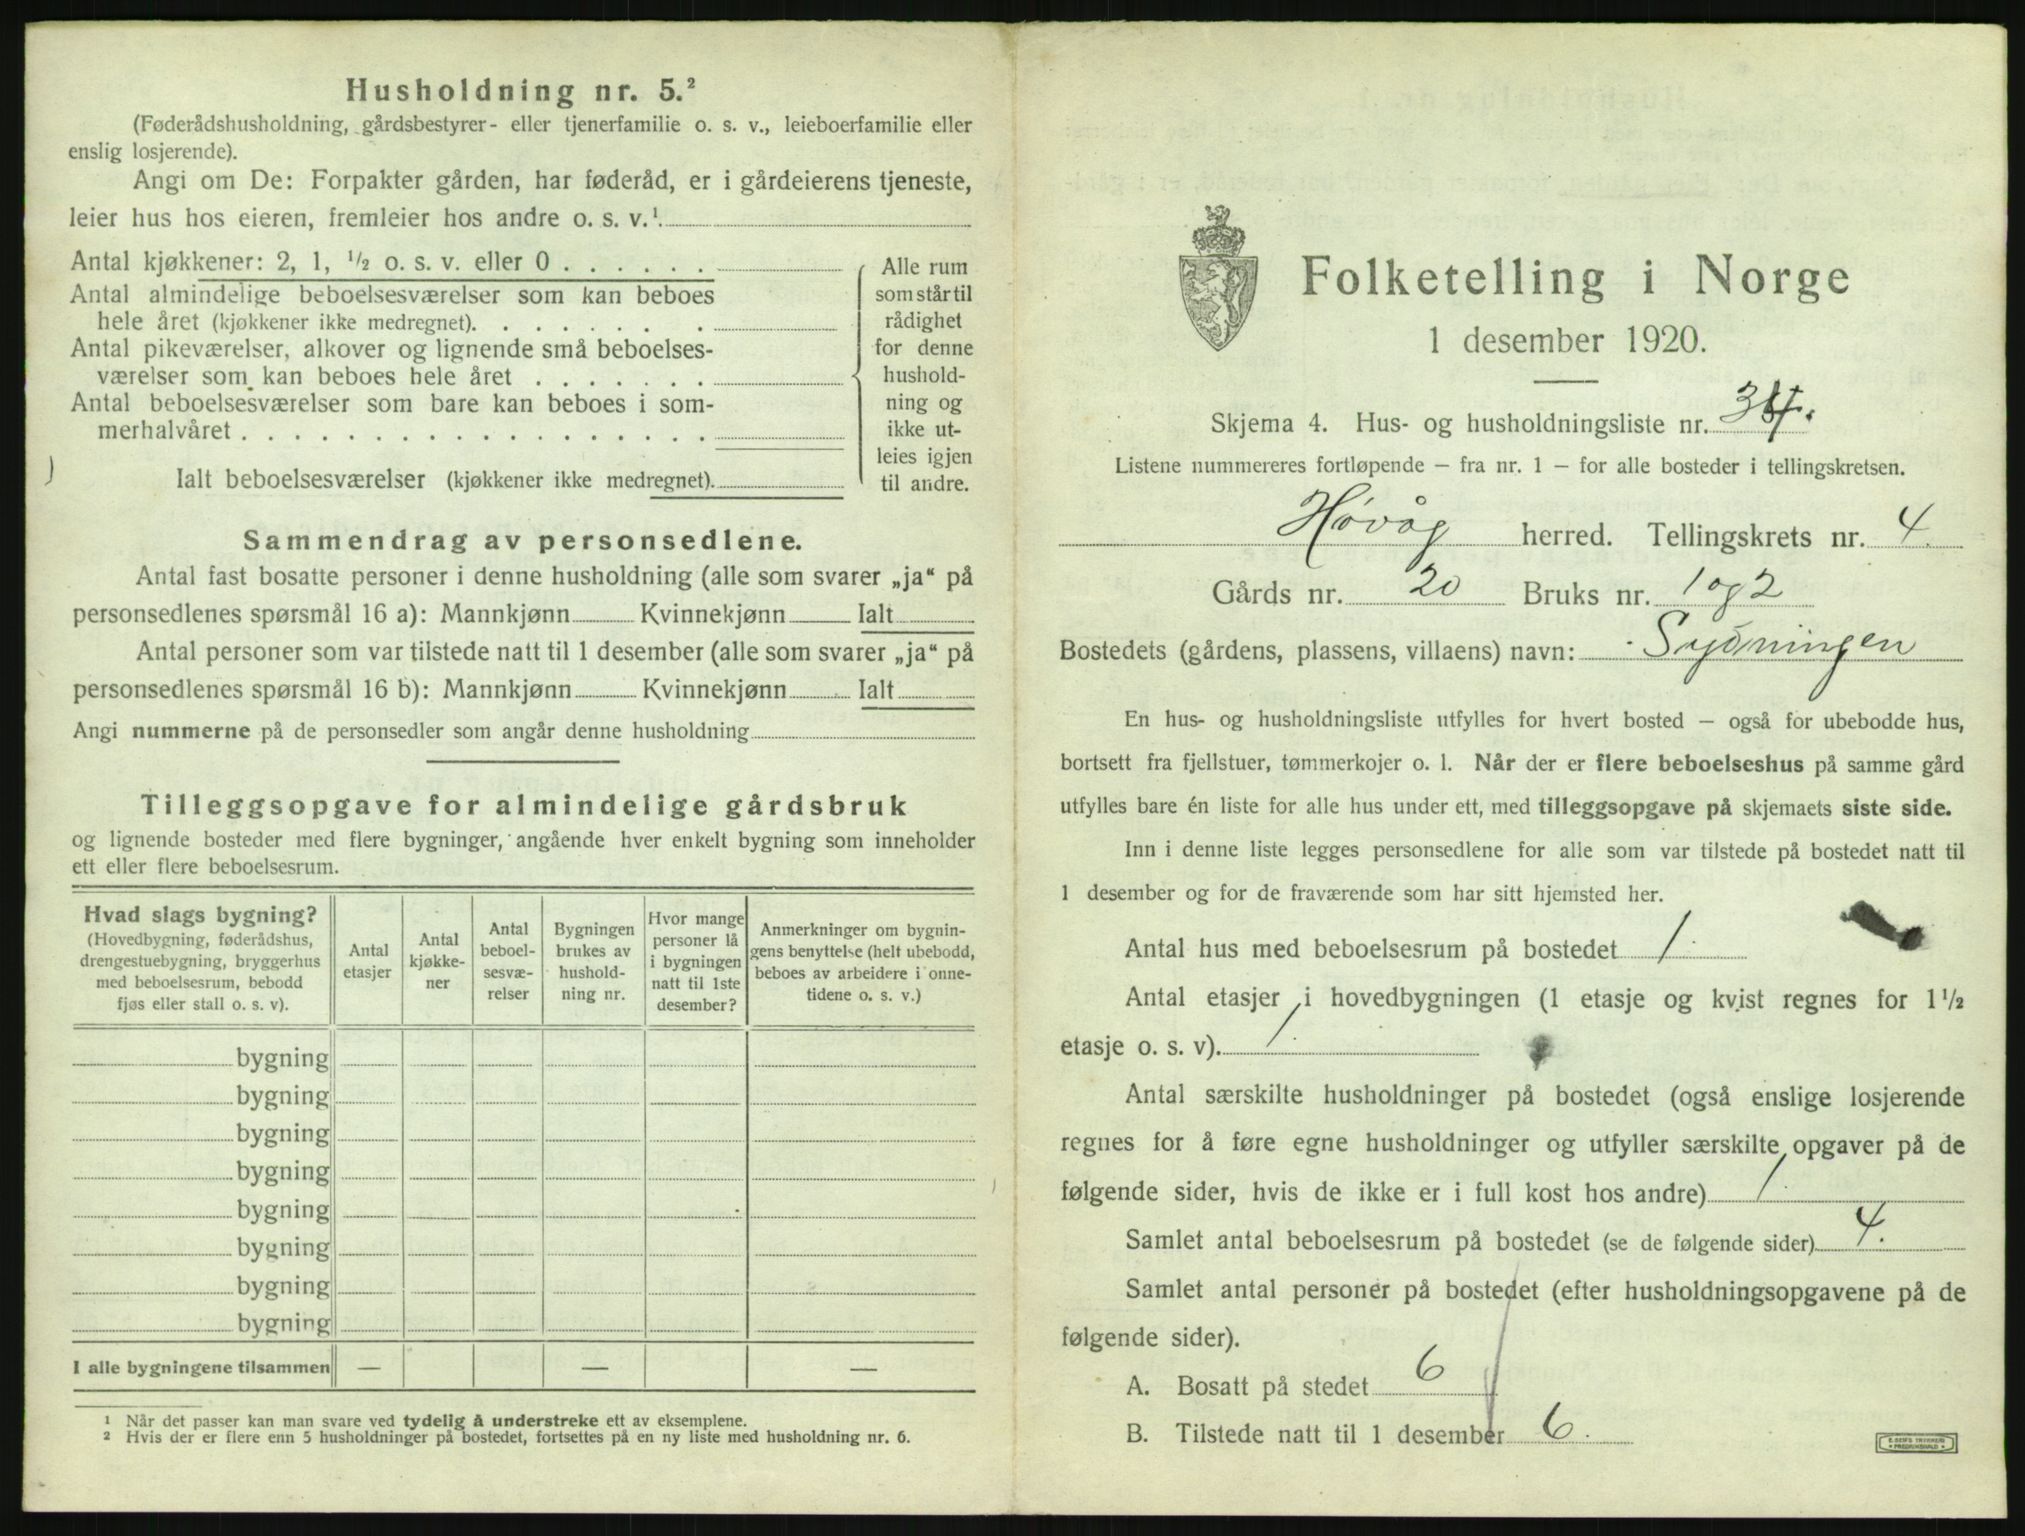 Husholdning nr. 5.²
(Føderådshusholdning, gårdsbestyrer- eller tjenerfamilie o. s. v., leieboerfamilie eller
enslig losjerende).
Angi om De: Forpakter gården, har føderåd, er i gårdeierens tjeneste,
leier hus hos eieren, fremleier hos andre o. s. v.¹
Antal kjøkkener: 2, 1, ½ o. s. v. eller 0 . . . . . .
Antal almindelige beboelsesværelser som kan beboes
hele året (kjøkkener ikke medregnet). . . . . . . .
Antal pikeværelser, alkover og lignende små beboelses-
værelser som kan beboes hele året . . . . . . .
Antal beboelsesværelser som bare kan beboes i som-
merhalvåret . . . . . . . . . . . . . . . . . .
Ialt beboelsesværelser (kjøkkener ikke medregnet).
Alle rum
som står til
rådighet
for denne
hushold-
ning og
ikke ut-
leies igjen
til andre.
Sammendrag av personsedlene.
Antal fast bosatte personer i denne husholdning (alle som svarer „ja“ på
personsedlenes spørsmål 16 a): Mannkjønn Kvinnekjønn Ialt
Antal personer som var tilstede natt til 1 desember (alle som svarer „ja“ på
personsedlenes spørsmål 16 b): Mannkjønn Kvinnekjønn Ialt
Angi nummerne på de personsedler som angår denne husholdning
Tilleggsopgave for almindelige gårdsbruk
og lignende bosteder med flere bygninger, angående hver enkelt bygning som inneholder
ett eller flere beboelsesrum.
Hvad slags bygning?
(Hovedbygning, føderådshus,
drengestuebygning, bryggerhus
med beboelsesrum, bebodd
fjøs eller stall o. s. v).
Antal
etasjer
Antal
kjøkke-
ner
Antal
beboel-
sesvæ-
relser
Bygningen
brukes av
hushold-
ning nr.
Hvor mange
personer lå
i bygningen
natt til 1ste
desember?
Anmerkninger om bygnin-
gens benyttelse (helt ubebodd,
beboes av arbeidere i onne-
tidene o. s. v.)
bygning
bygning
bygning
bygning
bygning
bygning
bygning
bygning
I alle bygningene tilsammen — — —
1 Når det passer kan man svare ved tydelig å understreke ett av eksemplene.
2 Hvis der er flere enn 5 husholdninger på bostedet, fortsettes på en ny liste med husholdning nr. 6.
Folketelling i Norge
1 desember 1920.
Skjema 4. Hus- og husholdningsliste nr. 34.
Listene nummereres fortløpende – fra nr. 1 – for alle bosteder i tellingskretsen.
Høvåg herred. Tellingskrets nr. 4.
Gårds nr. 20 Bruks nr. 1 og 2
Bostedets (gårdens, plassens, villaens) navn: Sydningen
En hus- og husholdningsliste utfylles for hvert bosted – også for ubebodde hus,
bortsett fra fjellstuer, tømmerkojer o. l. Når der er flere beboelseshus på samme gård
utfylles bare én liste for alle hus under ett, med tilleggsopgave på skjemaets siste side.
Inn i denne liste legges personsedlene for alle som var tilstede på bostedet natt til
1 desember og for de fraværende som har sitt hjemsted her.
Antal hus med beboelsesrum på bostedet 1.
Antal etasjer i hovedbygningen (1 etasje og kvist regnes for 1½
etasje o. s. v). 1.
Antal særskilte husholdninger på bostedet (også enslige losjerende
regnes for å føre egne husholdninger og utfyller særskilte opgaver på de
følgende sider, hvis de ikke er i full kost hos andre) 1.
Samlet antal beboelsesrum på bostedet (se de følgende sider) 4.
Samlet antal personer på bostedet (efter husholdningsopgavene på de
følgende sider).
A. Bosatt på stedet 6
B. Tilstede natt til 1 desember 6.